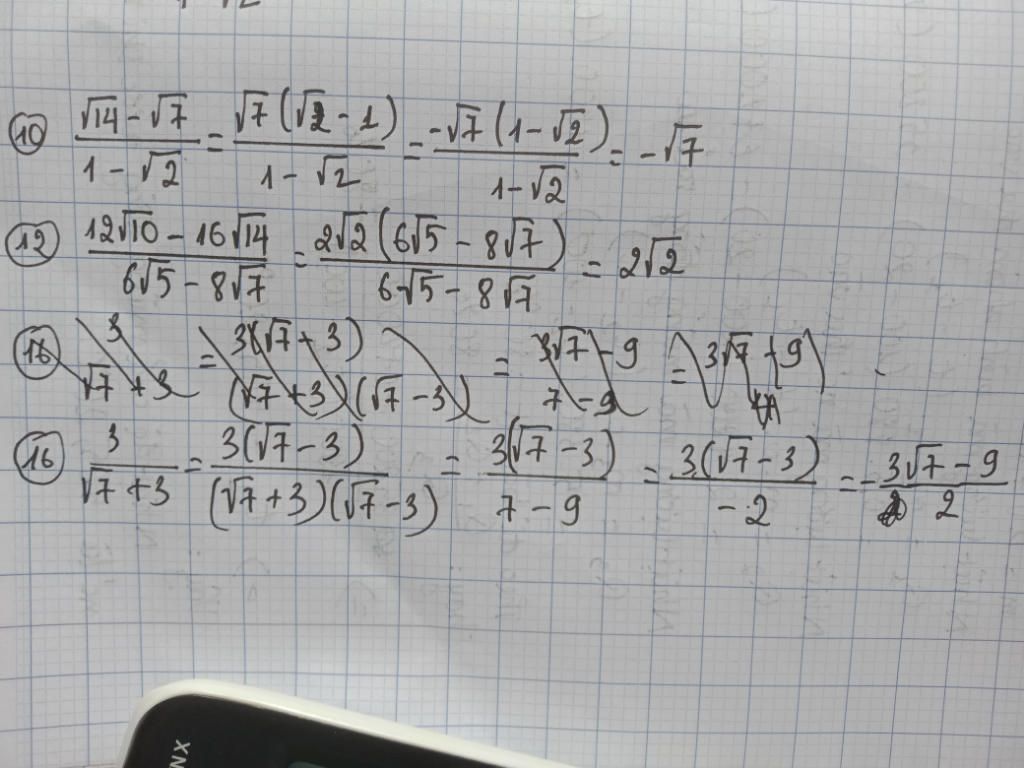 √2
10 (√14 - √7)/(1 - √2) = √7(√2 - 1)/(1 - √2) = -√7(1 - √2)/(1 - √2) = -√7
12 (12√10 - 16√14)/(6√5 - 8√7) = 2√2(6√5 - 8√7)/(6√5 - 8√7) = 2√2
16 3/(√7 + 3) = 3(√7 + 3)/((√7 + 3)(√7 - 3)) = (3√7 - 9)/(7 - 9) = 3√7 + 9
16 3/(√7 + 3) = 3(√7 - 3)/((√7 + 3)(√7 - 3)) = 3(√7 - 3)/(7 - 9) = 3(√7 - 3)/(-2) = -(3√7 - 9)/2
NX